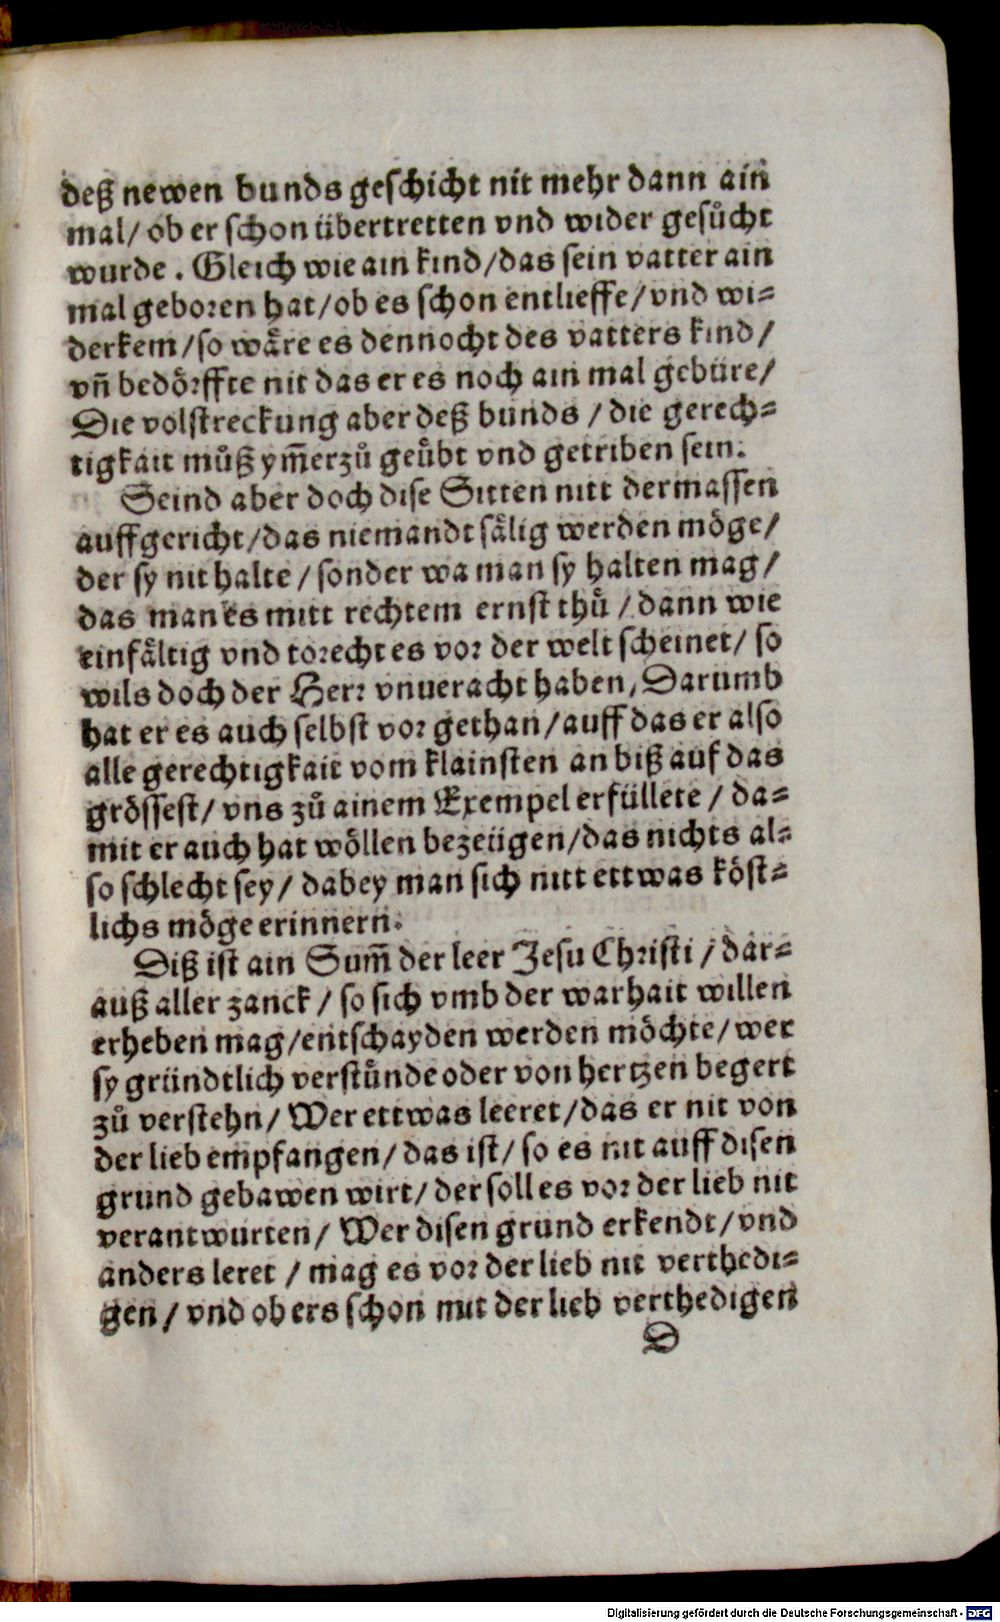 deß newen bunds geschicht nit mehr dann ain
mal/ ob er schon übertretten vnd wider gesůcht
wurde. Gleich wie ain kind/das sein vatter ain
mal geboren hat/ob es schon entlieffe/vnd wi⸗
derkem/so wåre es dennocht des vatters kind/
vñ bedörffte nit das er es noch ain mal gebüre/
Die volstreckung aber deß bunds / die gerech⸗
tigkait můß ym̃erzů geůbt vnd getriben sein.
Seind aber doch dise Sitten nitt dermassen
auffgericht/das niemandt sålig werden möge/
der sy nit halte / sonder wa man sy halten mag/
das man es mitt rechtem ernst thů / dann wie
einfåltig vnd torecht es vor der welt scheinet/ so
wils doch der Herr vnueracht haben, Darumb
hat er es auch selbst vor gethan/auff das er also
alle gerechtigkait vom klainsten an biß auf das
grössest/ vns zů ainem Exempel erfüllete / da⸗
mit er auch hat wöllen bezeügen/das nichts al⸗
so schlecht sey/ dabey man sich nitt ettwas köst⸗
lichs möge erinnern.
Diß ist ain Sum̃ der leer Jesu Christi / dar⸗
auß aller zanck / so sich vmb der warhait willen
erheben mag/entschayden werden möchte/wer
sy gründtlich verstůnde oder von hertzen begert
zů verstehn/ Wer ettwas leeret/das er nit von
der lieb empfangen/ das ist/ so es nit auff disen
grund gebawen wirt/ der soll es vor der lieb nit
verantwurten/ Wer disen grund erkendt/vnd
anders leret / mag es vor der lieb nit verthedi⸗
gen/ vnd ob ers schon mit der lieb verthedigen
D
Digitalisierung gefördert durch die Deutsche Forschungsgemeinschaft - DFG